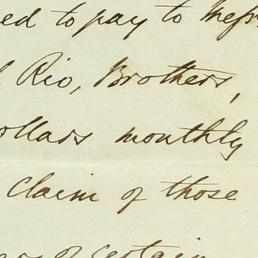 ed to pay to Mess
l Rio, Brothers,
ollars monthly
Claim of those
of certain